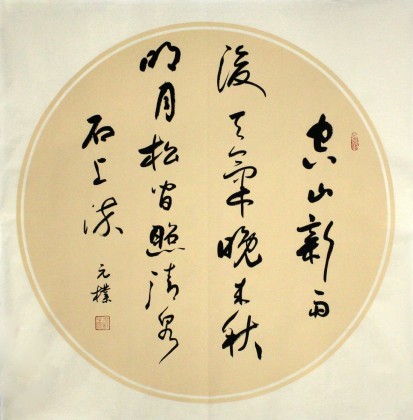 空山新雨
後天氣晚来秋
明月松間照清泉
石上流
元樸